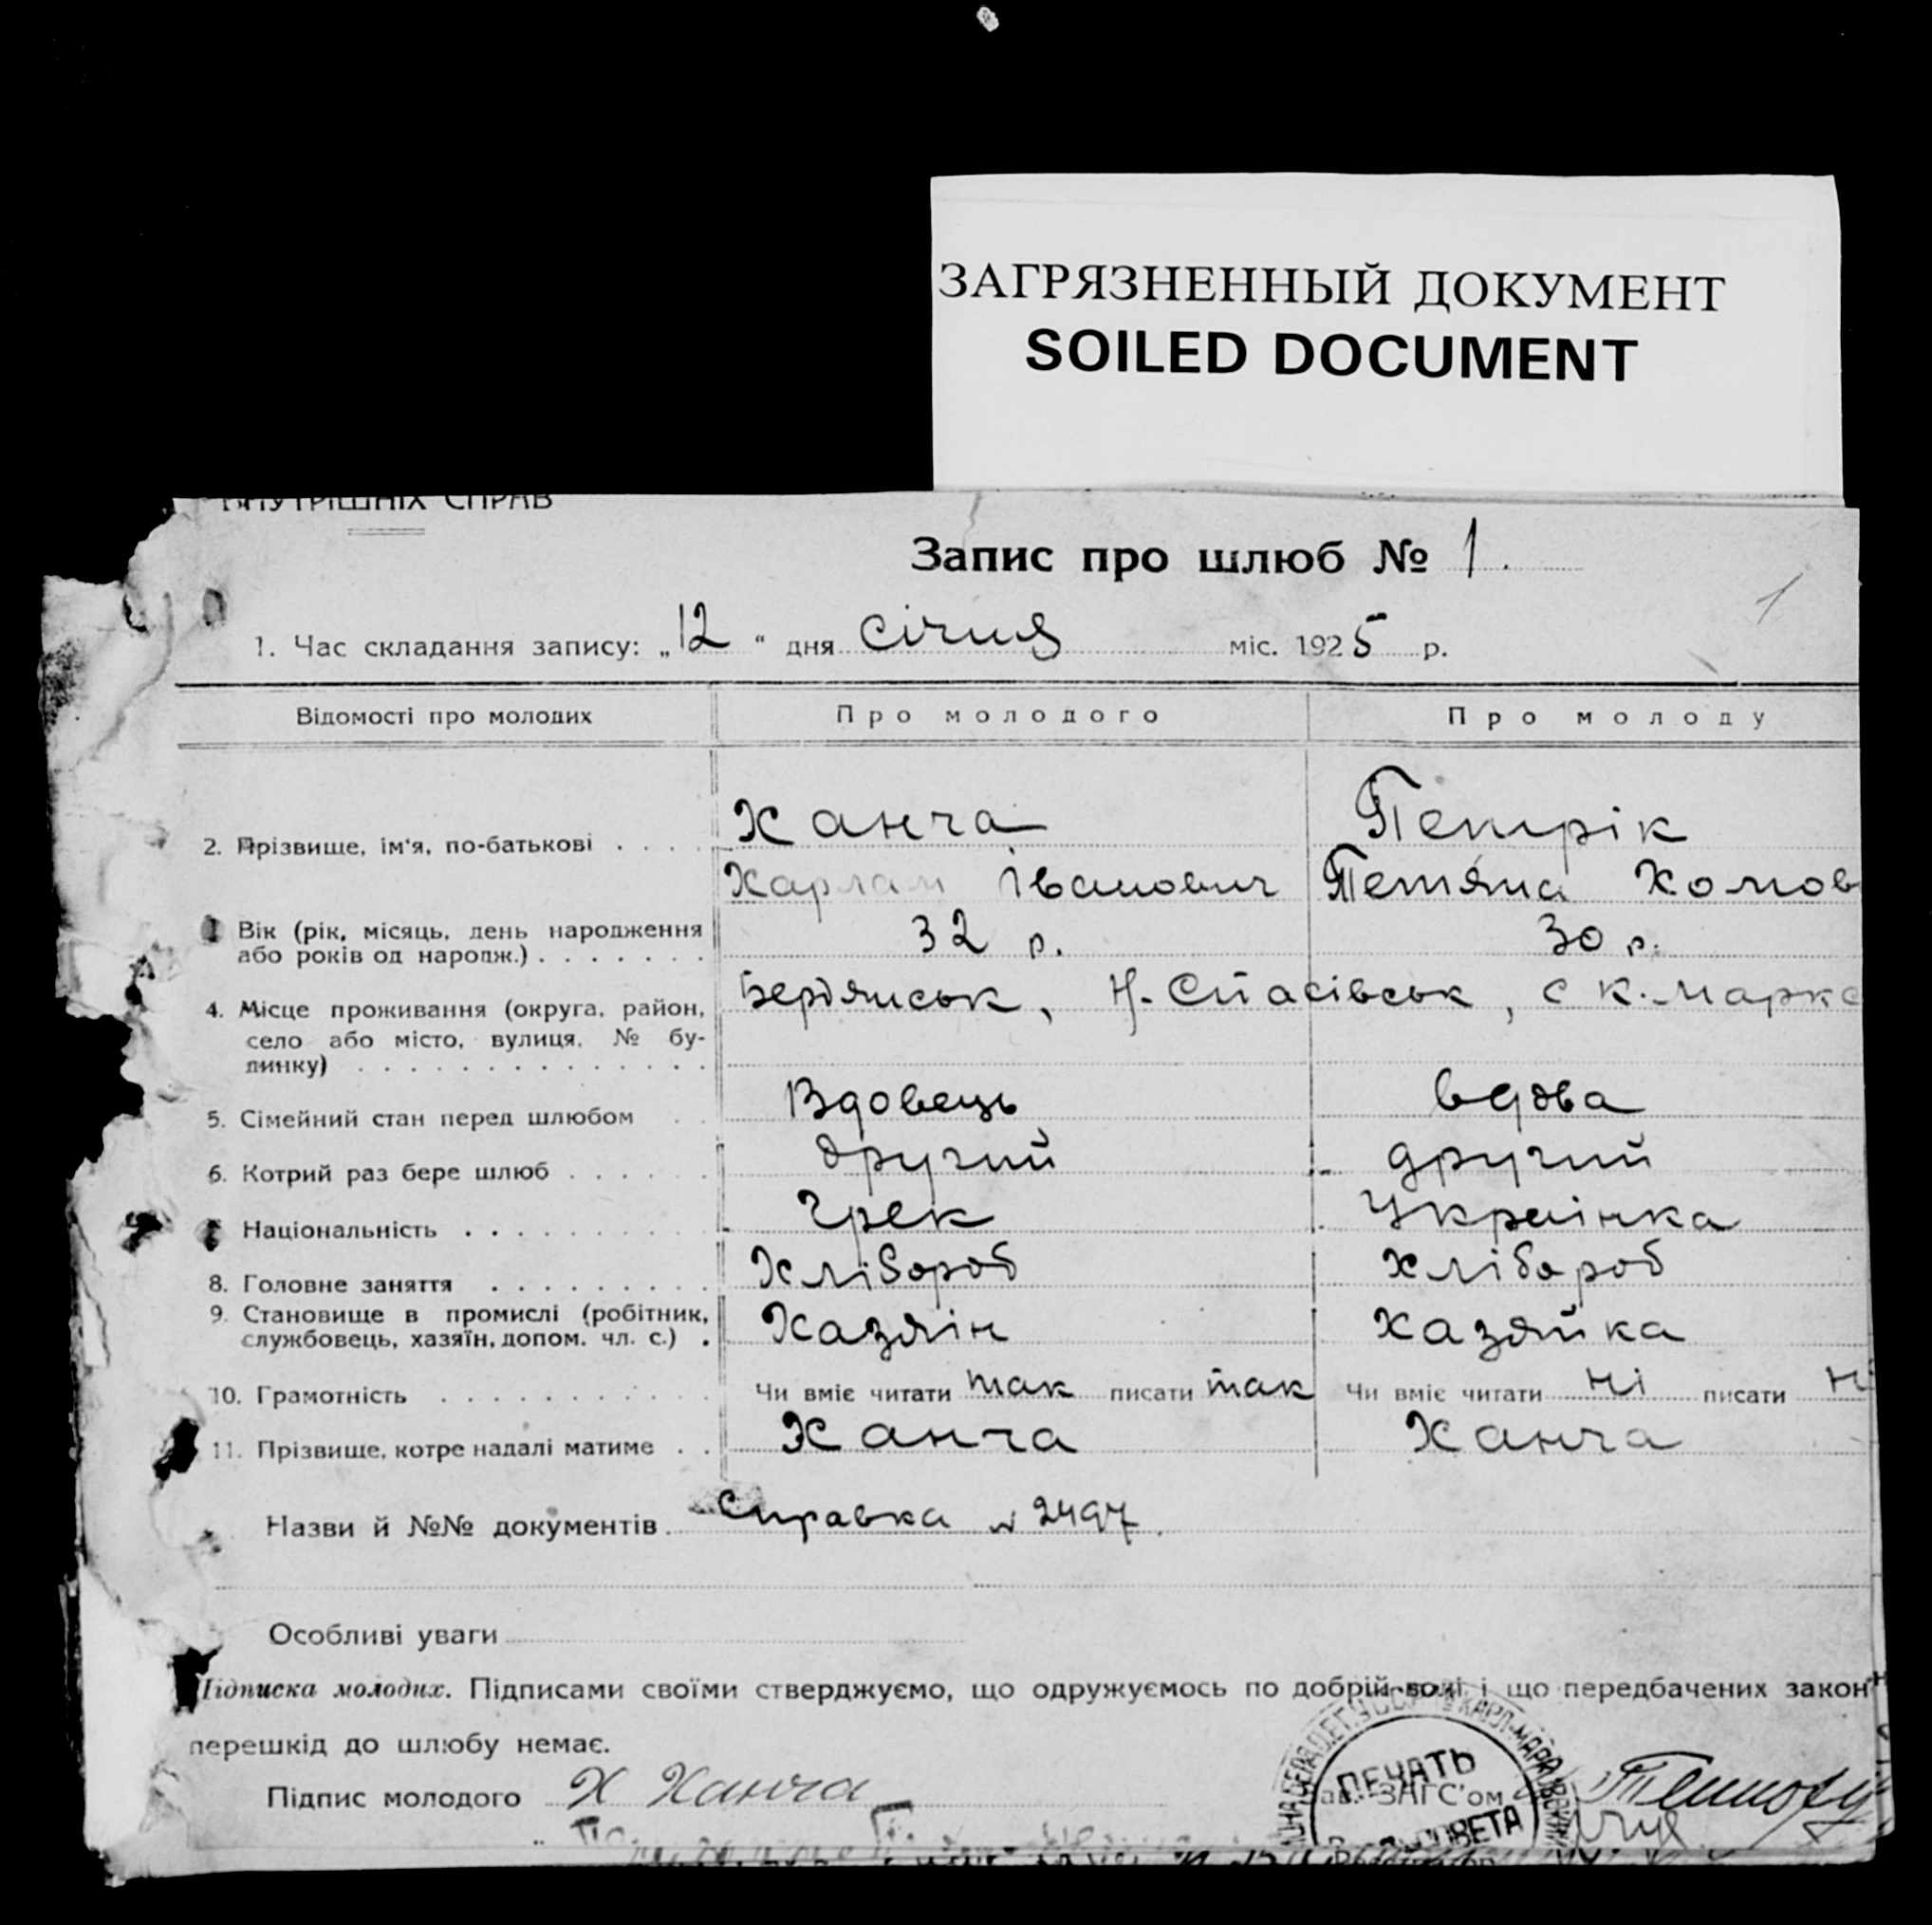 ЗАГРЯЗНЕННЫЙ ДОКУМЕНТ
SOILED DOCUMENT
ВНУТРІШНІХ СПРАВ
Запис про шлюб № 1.
1
1. Час складання запису: „12“ дня січня міс. 1925 р.
Відомості про молодих Про молодого Про молоду
Ханча Петрік
2. Прізвище, ім'я, по-батькові
Харлам Іванович Тетяна Хомов
Вік (рік, місяць, день народження 32 р. 30 р.
або років од народж.)
4. Місце проживання (округа, район, Бердянськ, Н-Спасівськ, с К. Маркс
село або місто, вулиця, № бу-
динку)
5. Сімейний стан перед шлюбом Вдовець вдова
6. Котрий раз бере шлюб другий другий
Національність Грек Українка
8. Головне заняття Хлібороб хлібороб
9. Становище в промислі (робітник, Хазяін хазяйка
службовець, хазяїн, допом. чл. с.)
10. Грамотність Чи вміє читати так писати так Чи вміє читати ні писати ні
11. Прізвище, котре надалі матиме Ханча Ханча
Назви й №№ документів Справка № 2497.
Особливі уваги
Підписка молодих. Підписами своїми стверджуємо, що одружуємось по добрій волі і що передбачених закон
перешкід до шлюбу немає.
Підпис молодого Х Ханча Зав. ЗАГС'ом
ПЕЧАТЬ